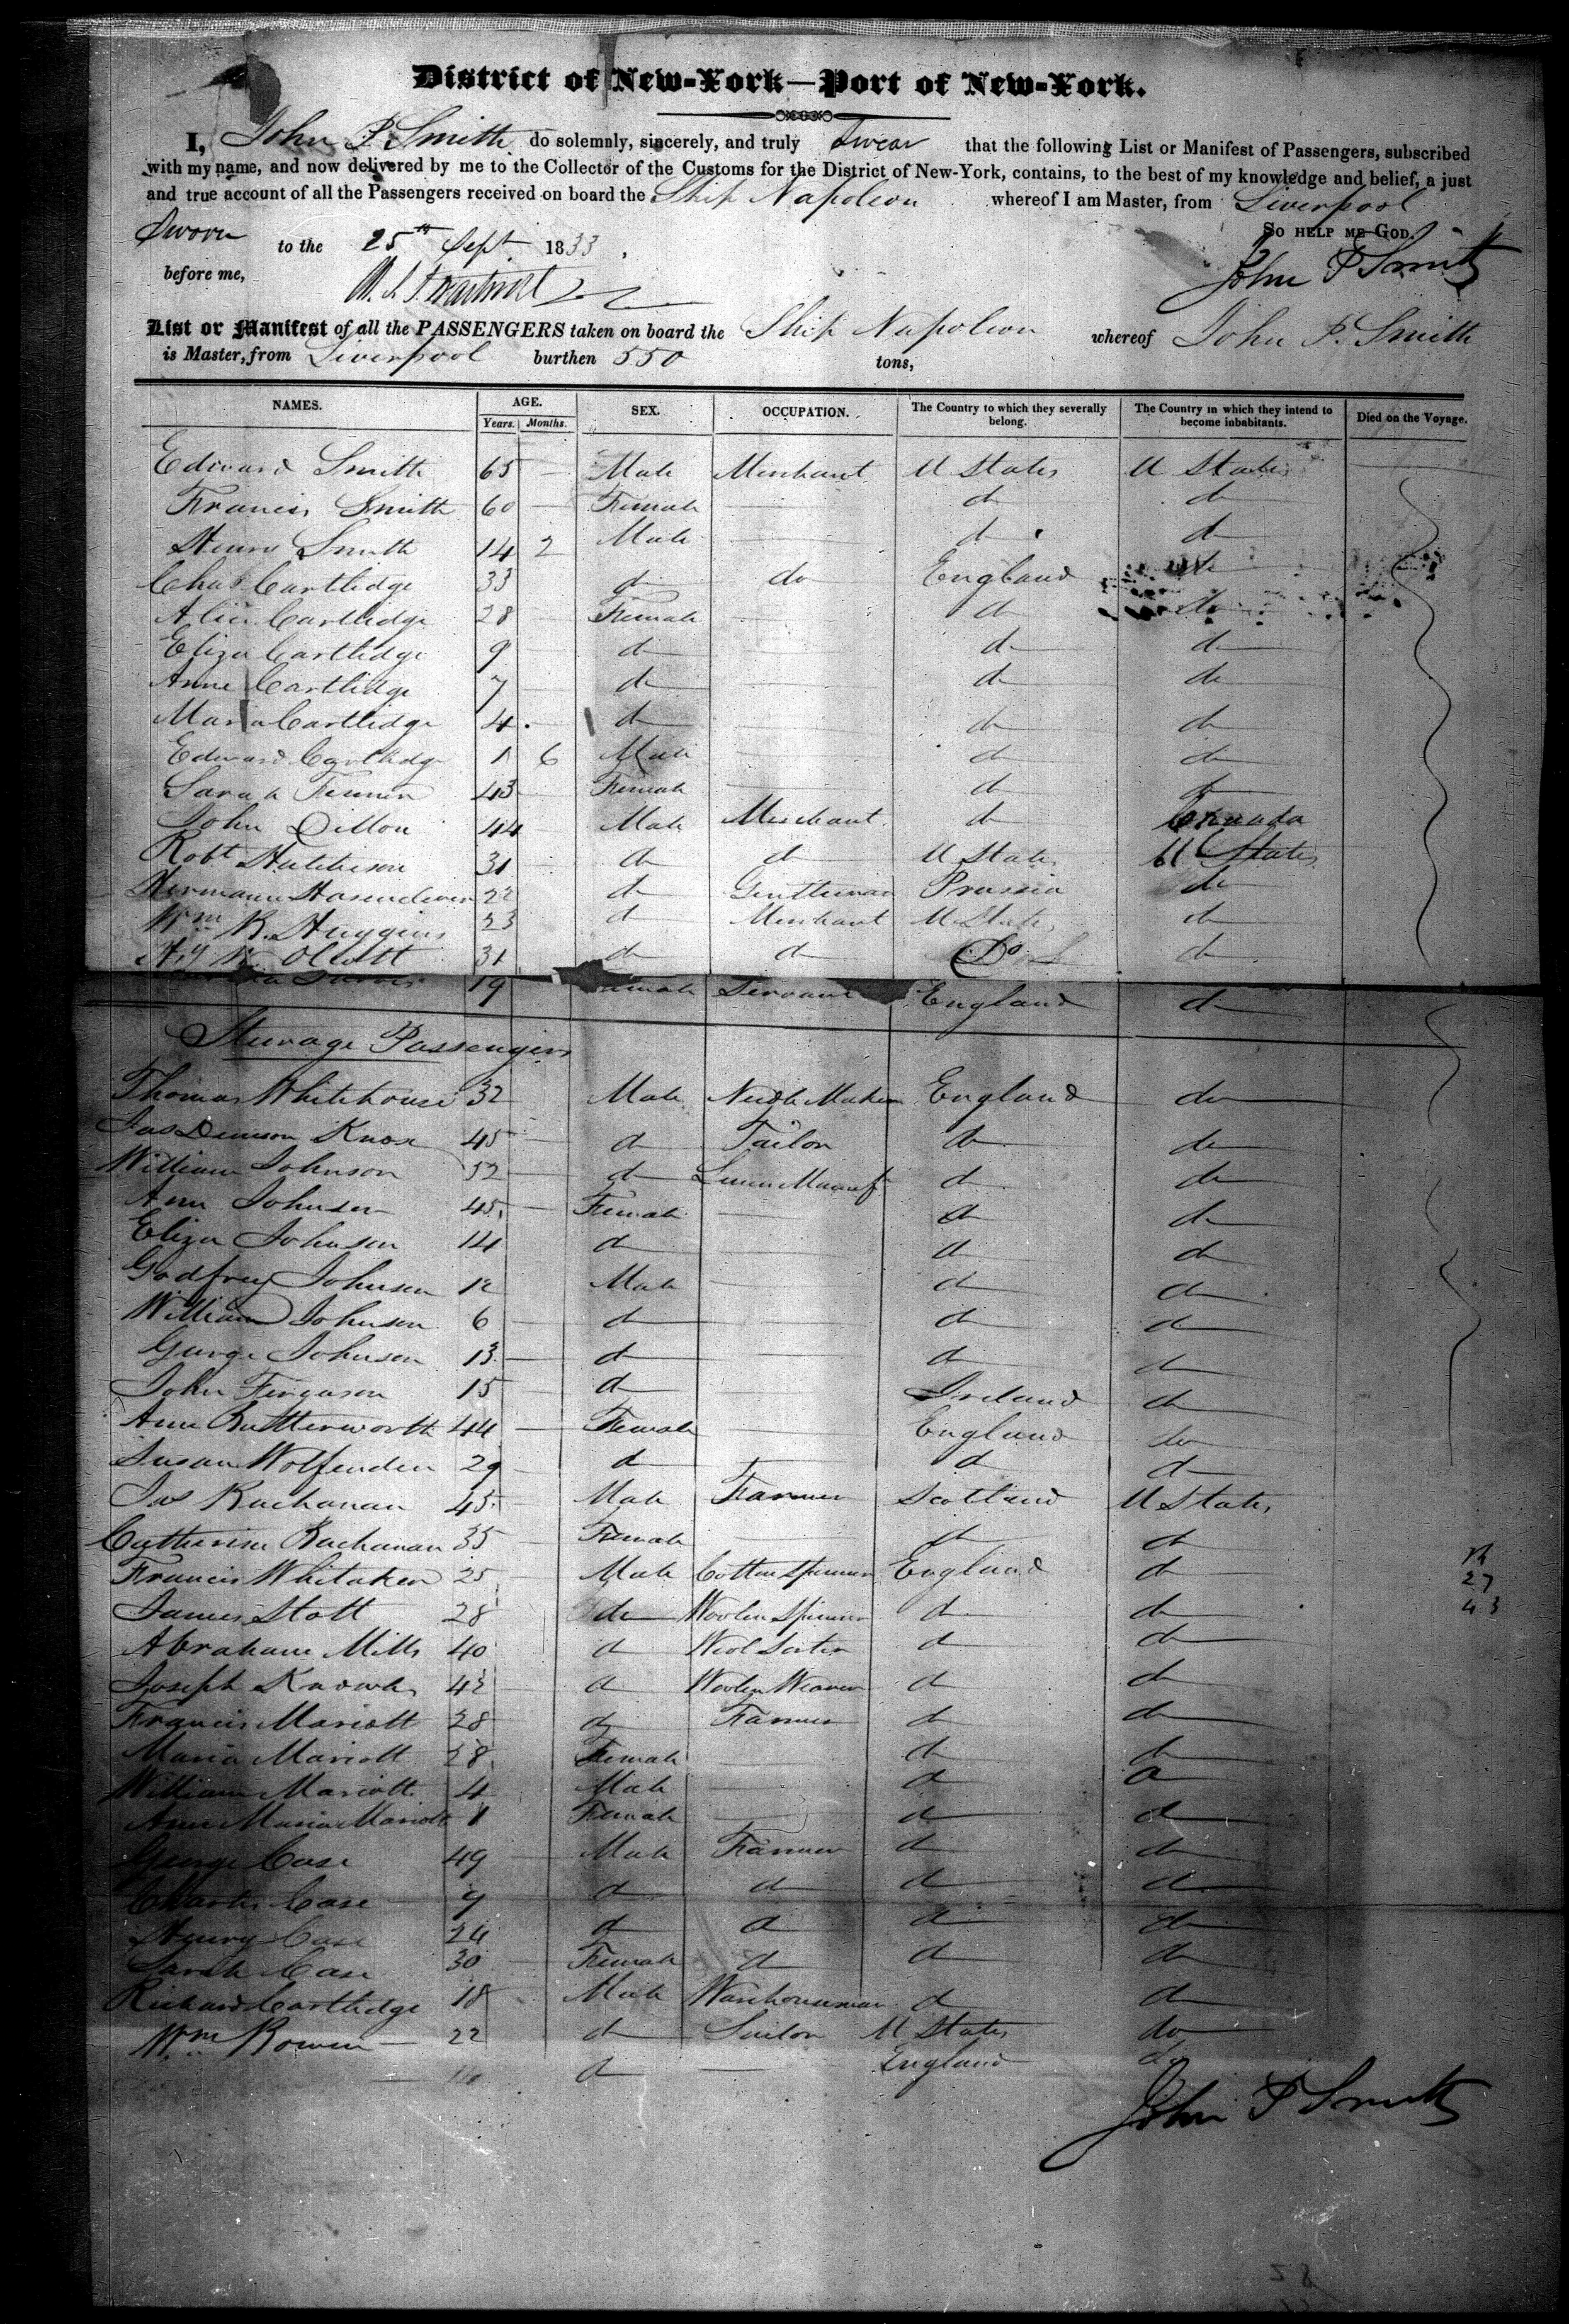 District of New-York—Port of New-York.
I, John P. Smith do solemnly, sincerely, and truly Swear that the following List or Manifest of Passengers, subscribed
with my name, and now delivered by me to the Collector of the Customs for the District of New-York, contains, to the best of my knowledge and belief, a just
and true account of all the Passengers received on board the Ship Napoleon whereof I am Master, from Liverpool
SO HELP ME GOD.
Sworn to the 25th Sept 1833,
before me, John P Smith
List or Manifest of all the PASSENGERS taken on board the Ship Napoleon whereof John P. Smith
is Master, from Liverpool burthen 550 tons,
NAMES. AGE. SEX. OCCUPATION. The Country to which they severally belong. The Country in which they intend to become inhabitants. Died on the Voyage.
Years. Months.
Edward Smith 65 — Male Merchant U States U States
Francis Smith 60 — Female — d d
Henry Smith 14 2 Male — d d
Chas Cartlidge 33 d do England do
Alice Cartlidge 28 Female — d do
Eliza Cartlidge 9 d — d d
Anne Cartlidge 7 d — d d
Maria Cartlidge 4 d — d d
Edward Cartlidge 1 6 Male — d d
Sarah 43 Female — d d
John Dillon 44 Male Merchant d Canada
Robt Hutchison 31 d d U States U States
Hermann 22 d Gentleman Prussia do
Wm R. Huggins 23 d Merchant U States d
Olcott 31 d d Do d
19 Female Servant England d
Steerage Passengers
Thomas Whitehouse 32 Male Needle Maker England do
Jas Knox 45 — d Tailor do do
William Johnson 52 — d Linen Manuf d do
Ann Johnson 45 — Female — d d
Eliza Johnson 14 d — d d
Godfrey Johnson 12 Male — d d
William Johnson 6 — d — d d
George Johnson 13 — d — d d
John Ferguson 15 — d Ireland d
Ann Butterworth 44 — Female — England do
Susan Wolfenden 29 — d — d d
Jas Buchanan 45 — Male Farmer Scotland U States
Catherine Buchanan 35 Female — d d
Francis Whitaker 25 — Male Cotton Spinner England d
James Stott 28 do Woolen Spinner d d
27
43
Abraham Mills 40 d Wool Sorter d d
Joseph Knowles 42 — d Woolen Weaver d d
Francis Mariott 28 d Farmer d d
Maria Mariott 28 Female — d d
William Mariott 4 Male — d d
Ann Maria Mariott 1 Female — d d
George Case 49 Male Farmer d d
Charles Case 9 d d d d
Henry Case 24 d d d d
Sarah Case 30 Female d d d
Richard Cartlidge 18 Male Warehouseman d d
Wm Bowen 22 d Sailor U States do
d — England do
John P Smith